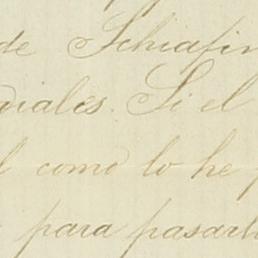 de Schiafin
diales. Si el
l como lo he
para pasarl